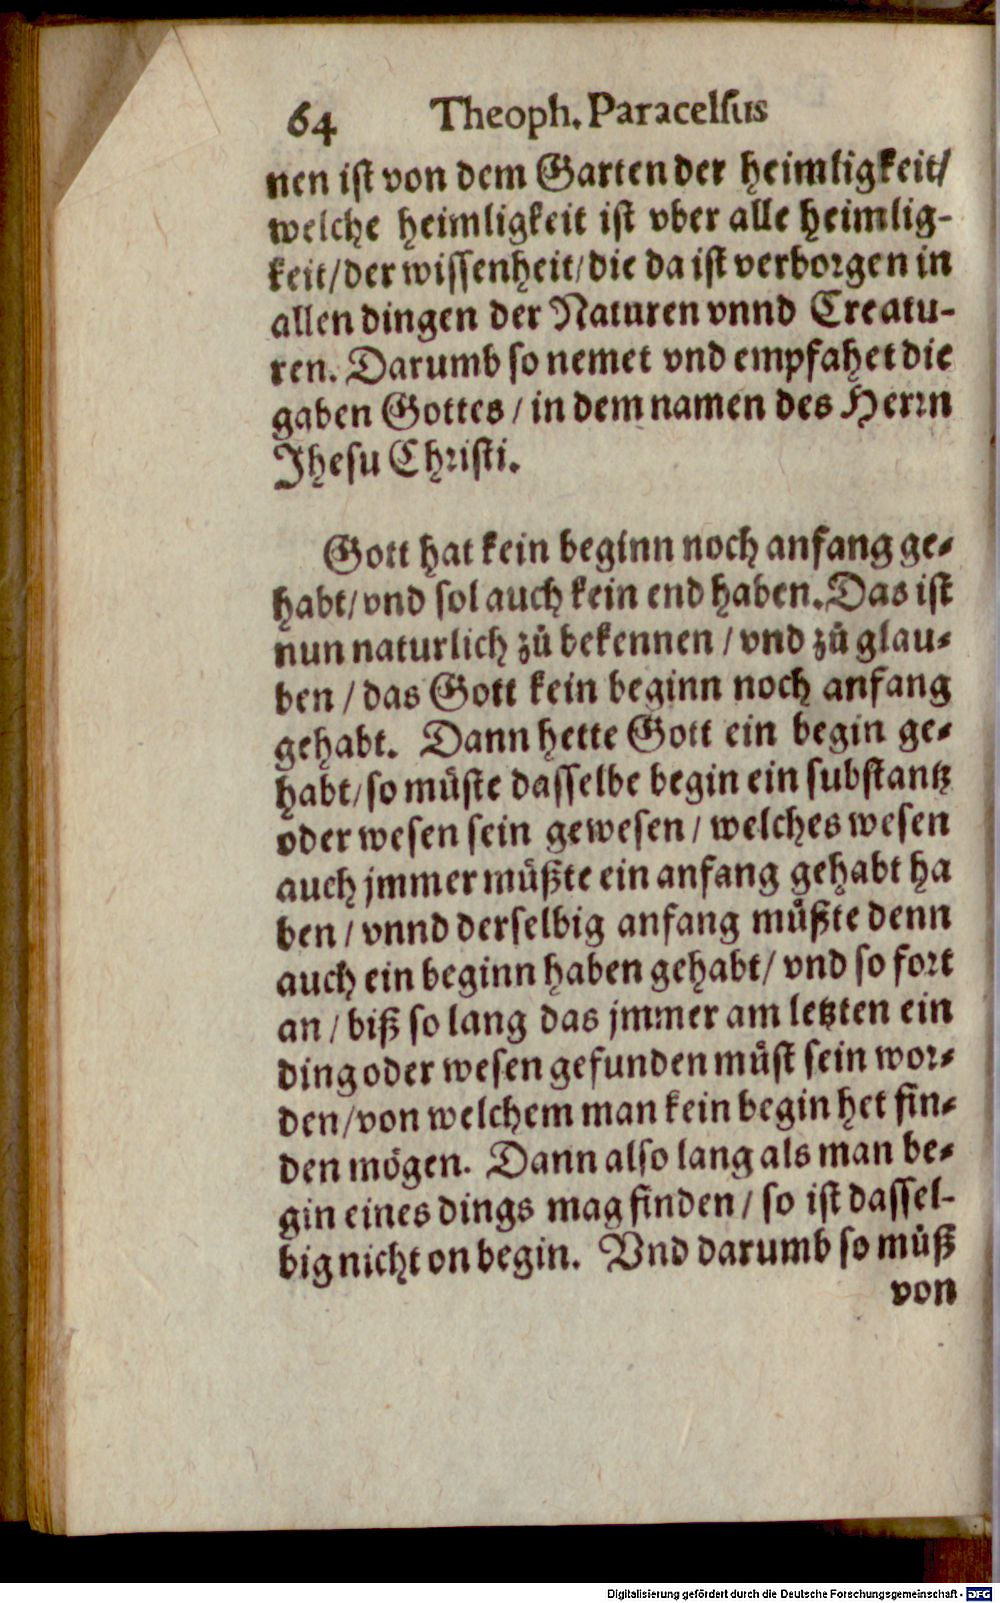 64 Theoph. Paracelsus
nen ist von dem Garten der heimligkeit/
welche heimligkeit ist vber alle heimlig-
keit/der wissenheit/die da ist verborgen in
allen dingen der Naturen vnnd Creatu-
ren. Darumb so nemet vnd empfahet die
gaben Gottes / in dem namen des Herrn
Jhesu Christi.
Gott hat kein beginn noch anfang ge-
habt/vnd sol auch kein end haben. Das ist
nun naturlich zů bekennen / vnd zů glau-
ben / das Gott kein beginn noch anfang
gehabt. Dann hette Gott ein begin ge-
habt/so müste dasselbe begin ein substantz
oder wesen sein gewesen / welches wesen
auch jmmer müßte ein anfang gehabt ha
ben / vnnd derselbig anfang müßte denn
auch ein beginn haben gehabt/ vnd so fort
an / biß so lang das jmmer am letzten ein
ding oder wesen gefunden müst sein wor-
den/von welchem man kein begin het fin-
den mögen. Dann also lang als man be-
gin eines dings mag finden / so ist dassel-
big nicht on begin. Vnd darumb so müß
von
Digitalisierung gefördert durch die Deutsche Forschungsgemeinschaft - DFG